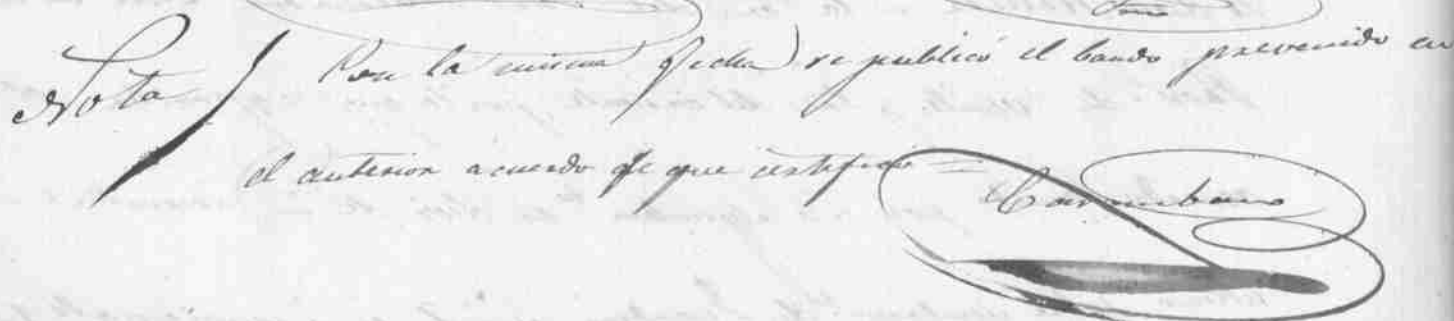 Nota Con la misma fecha se publicó el bando prevenido en
el anterior acuerdo de que certifico =